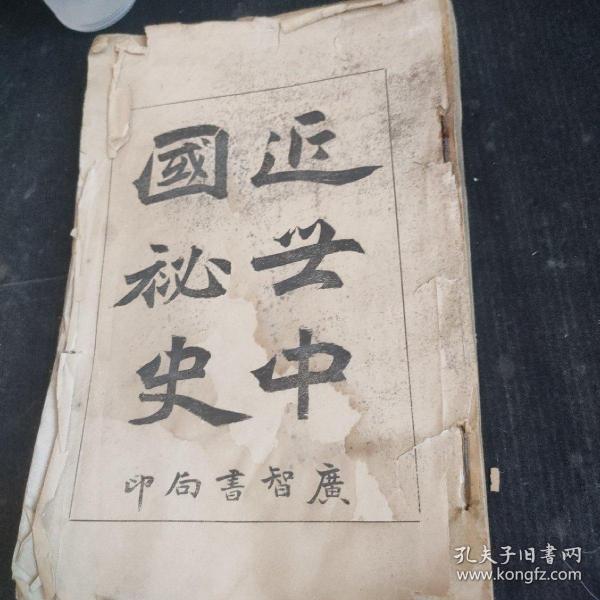 近世中
國祕史
廣智書局印
孔夫子旧书网
www.kongfz.com